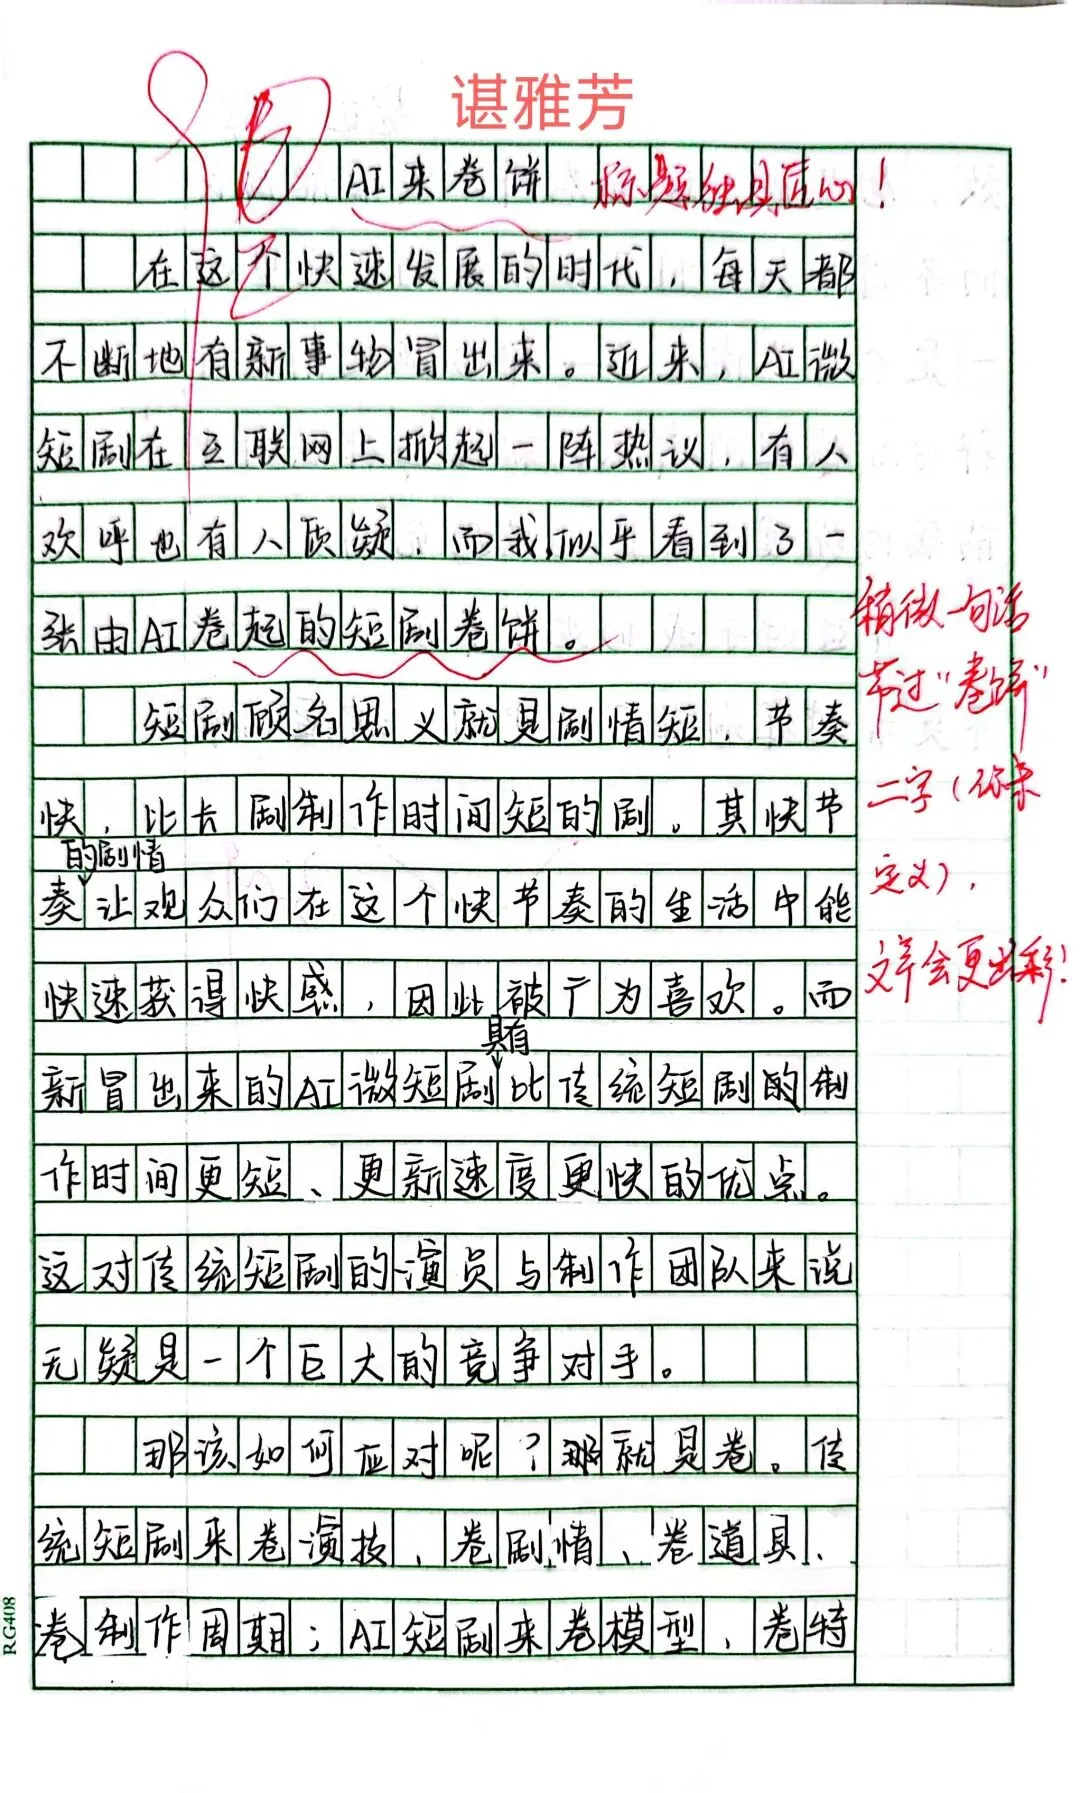 谌雅芳
AI来卷饼 标题独具匠心！
在这个快速发展的时代，每天都
不断地有新事物冒出来。近来，AI微
短剧在互联网上掀起一阵热议，有人
欢呼也有人质疑，而我似乎看到了一
张由AI卷起的短剧卷饼。
稍微一句话
节过"卷饼"
二字（你来
定义），
文章会更出彩！
短剧顾名思义就是剧情短，节奏
快，比长剧制作时间短的剧。其快节
的剧情
奏让观众们在这个快节奏的生活中能
快速获得快感，因此被广为喜欢。而
具有
新冒出来的AI微短剧比传统短剧的制
作时间更短、更新速度更快的优点。
这对传统短剧的演员与制作团队来说
无疑是一个巨大的竞争对手。
那该如何应对呢？那就是卷。传
统短剧来卷演技、卷剧情、卷道具、
卷制作周期；AI短剧来卷模型、卷特
RG408